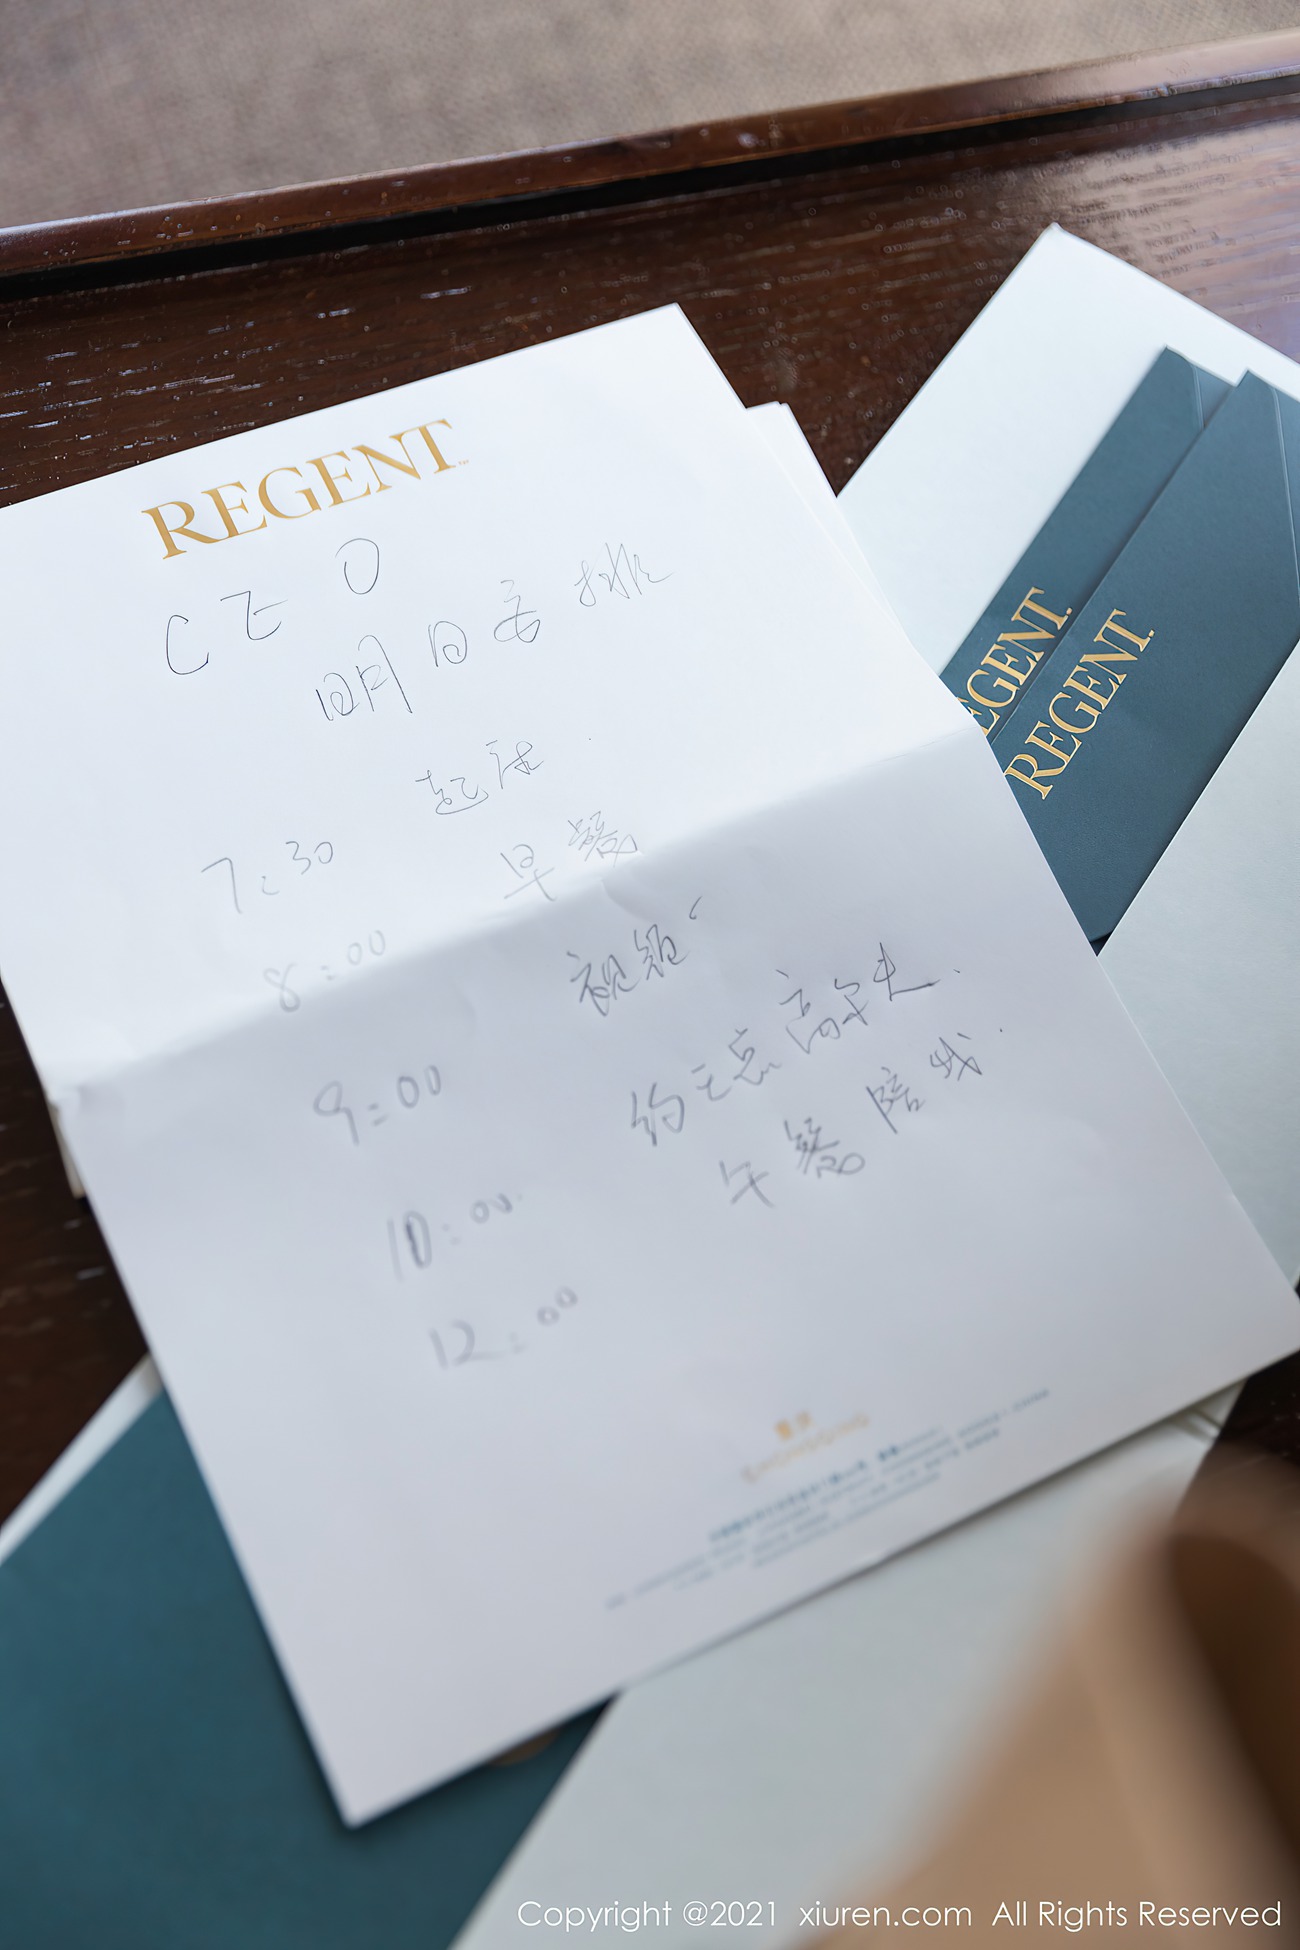 REGENT
CEO
明日安排
7:30 起床.
8:00 早餐
9:00 视频
10:00 约王总高尔夫.
12:00 午餐陪我.
重庆
CHONGQING
REGENT
REGENT
Copyright @2021 xiuren.com All Rights Reserved